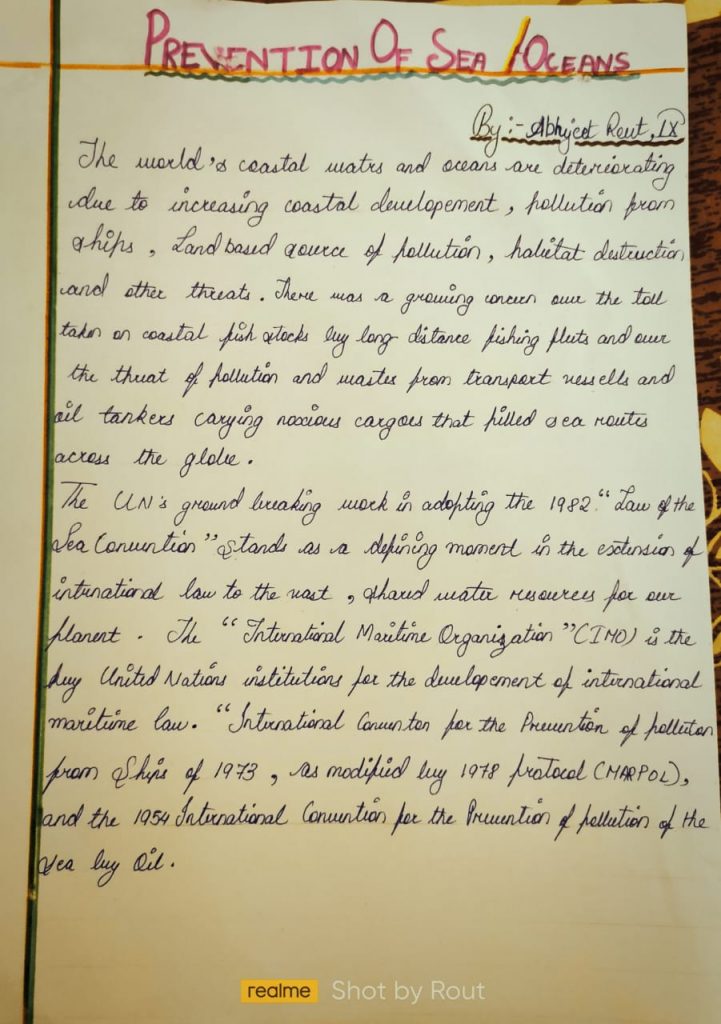 PREVENTION OF SEA / OCEANS
By :- Abhijeet Rout, IX
The world's coastal watrs and oceans are deteriorating
due to increasing coastal developement, pollution from
ships, Land based source of pollution, habitat destruction
and other threats. There was a growing concern over the toll
taken on coastal fish stocks by long-distance fishing fleets and over
the threat of pollution and wastes from transport vessells and
oil tankers carying noxious cargoes that filled sea routes
across the globe.
The UN's ground breaking work in adopting the 1982 "Law of the
Sea Convention" Stands as a defining moment in the extension of
international law to the vast, shared water resources for our
planent. The "International Maritime Organization" (IMO) is the
key United Nations institutions for the development of international
maritime law. "International Conventon for the Prevention of pollution
from Ships of 1973, as modified by 1978 protocol (MARPOL),
and the 1954 International Convention for the Prevention of pollution of the
Sea by Oil.
realme Shot by Rout